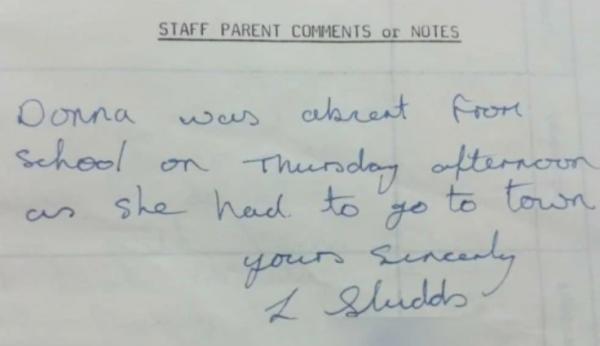 STAFF PARENT COMMENTS or NOTES
Donna was absent from
school on Thursday afternoon
as she had to go to town
yours sincerly
L Studds